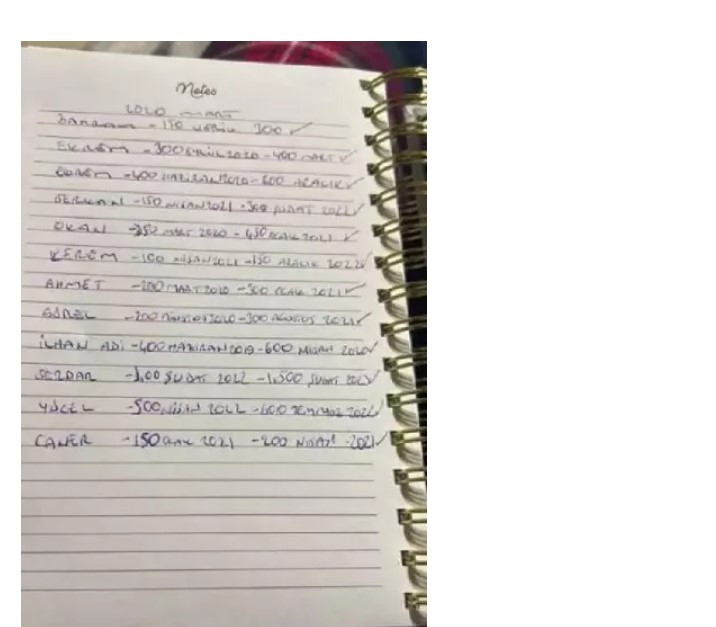 Notes
2020 MART
- 150 300 ✓
EKREM - 300 EYLÜL 2020 - 400 MART ✓
- 400 HAZİRAN 2020 - 600 ARALIK ✓
SERKAN - 150 NİSAN 2021 - 300 ŞUBAT 2022 ✓
OKAN - 350 MART 2020 - 450 OCAK 2021 ✓
KEREM - 100 NİSAN 2021 - 150 ARALIK 2022 ✓
AHMET - 200 MART 2020 - 300 OCAK 2021 ✓
- 200 2020 - 300 AĞUSTOS 2021 ✓
İLHAN ADİ - 400 HAZİRAN 2019 - 600 NİSAN 2020 ✓
SERDAR - 1,00 ŞUBAT 2022 - 1,500 ŞUBAT ✓
YÜCEL - 500 NİSAN 2022 - 600 TEMMUZ 2022 ✓
CAFER - 150 OCAK 2021 - 200 NİSAN - 2021 ✓